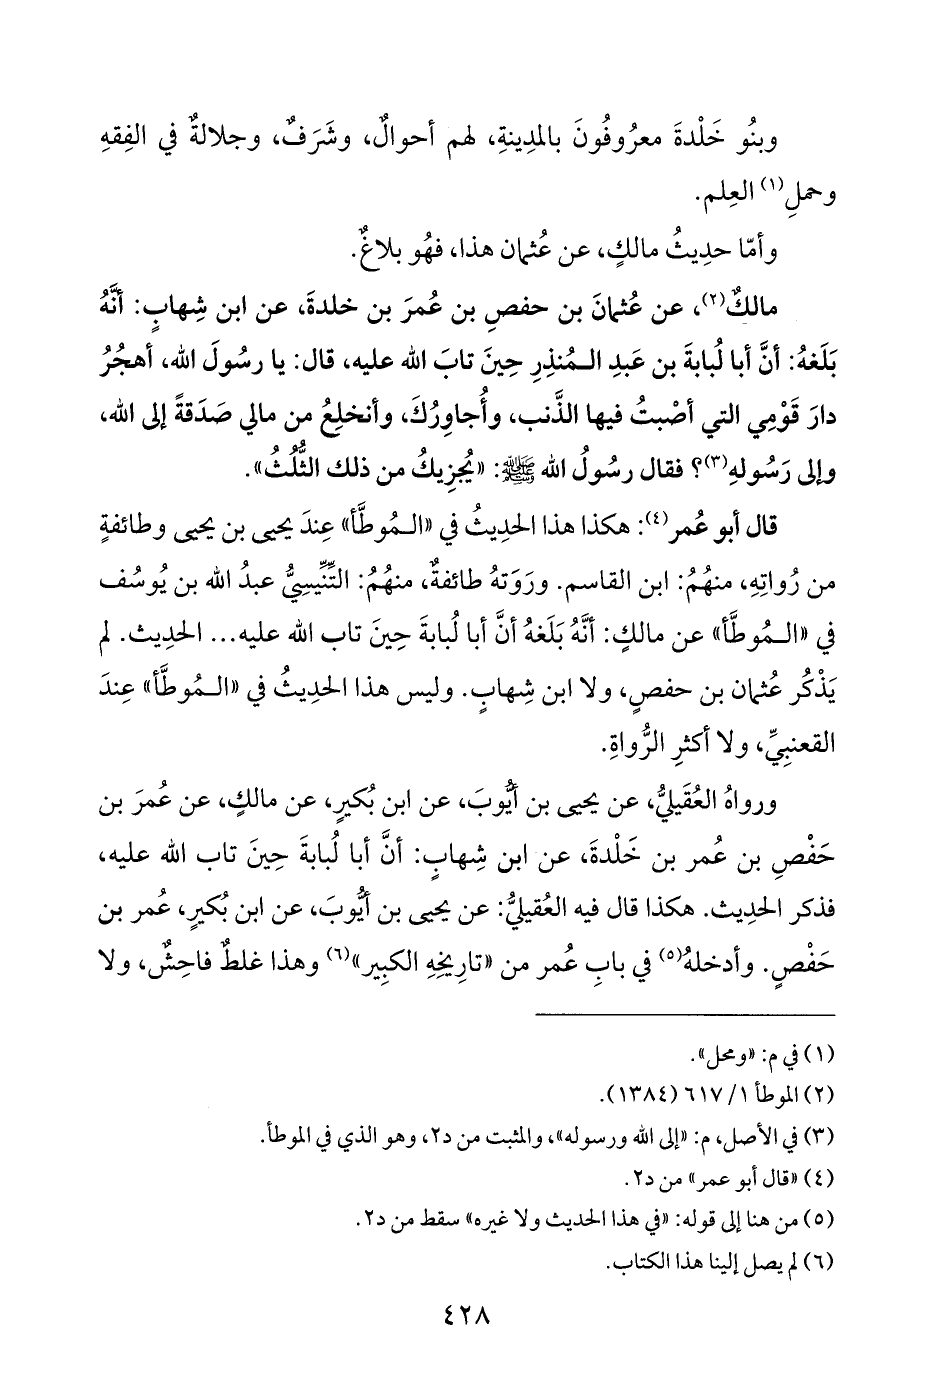 وبنُو خَلْدةَ معرُوفُونَ بالمدِينةِ، لهم أحوالٌ، وشَرَفٌ، وجلالةٌ في الفِقهِ
وحملِ(١) العِلم.
وأمّا حدِيثُ مالكٍ، عن عُثمان هذا، فهُو بلاغٌ.
مالكٌ(٢)، عن عُثمانَ بن حفصِ بن عُمرَ بن خلدةَ، عن ابن شِهابٍ: أنَّهُ
بَلَغهُ: أنَّ أبا لُبابةَ بن عَبدِ الـمُنذِرِ حِينَ تابَ الله عليه، قال: يا رسُولَ الله، أهجُرُ
دارَ قَوْمِي التي أصْبتُ فيها الذَّنب، وأُجاوِرُكَ، وأنخلِعُ من مالي صَدَقةً إلى الله،
وإلى رَسُولهِ(٣)؟ فقال رسُولُ الله ﷺ: «يُجزِيكُ من ذلك الثُّلُثُ».
قال أبو عُمر(٤): هكذا هذا الحدِيثُ في «الـمُوطَّأ» عِندَ يحيى بن يحيى وطائفةٍ
من رُواتِهِ، منهُمُ: ابن القاسم. ورَوَتهُ طائفةٌ، منهُمُ: التِّنِّيسِيُّ عبدُ الله بن يُوسُف
في «الـمُوطَّأ» عن مالكٍ: أنَّهُ بَلَغهُ أنَّ أبا لُبابةَ حِينَ تاب الله عليه... الحدِيث. لم
يَذْكُر عُثمان بن حفصٍ، ولا ابن شِهابٍ. وليس هذا الحدِيثُ في «الـمُوطَّأ» عِندَ
القعنبِيِّ، ولا أكثرِ الرُّواةِ.
ورواهُ العُقَيليُّ، عن يحيى بن أيُّوبَ، عن ابن بُكيرٍ، عن مالكٍ، عن عُمرَ بن
حَفْصِ بن عُمر بن خَلْدةَ، عن ابن شِهابٍ: أنَّ أبا لُبابةَ حِينَ تاب الله عليه،
فذكر الحدِيث. هكذا قال فيه العُقيليُّ: عن يحيى بن أيُّوبَ، عن ابن بُكيرٍ، عُمر بن
حَفْصٍ. وأدخلهُ(٥) في بابِ عُمر من «تاريخِهِ الكبِير»(٦) وهذا غلطٌ فاحِشٌ، ولا
(١) في م: «ومحل».
(٢) الموطأ ١/ ٦١٧ (١٣٨٤).
(٣) في الأصل، م: «إلى الله ورسوله»، والمثبت من د٢، وهو الذي في الموطأ.
(٤) «قال أبو عمر» من د٢.
(٥) من هنا إلى قوله: «في هذا الحديث ولا غيره» سقط من د٢.
(٦) لم يصل إلينا هذا الكتاب.
٤٢٨